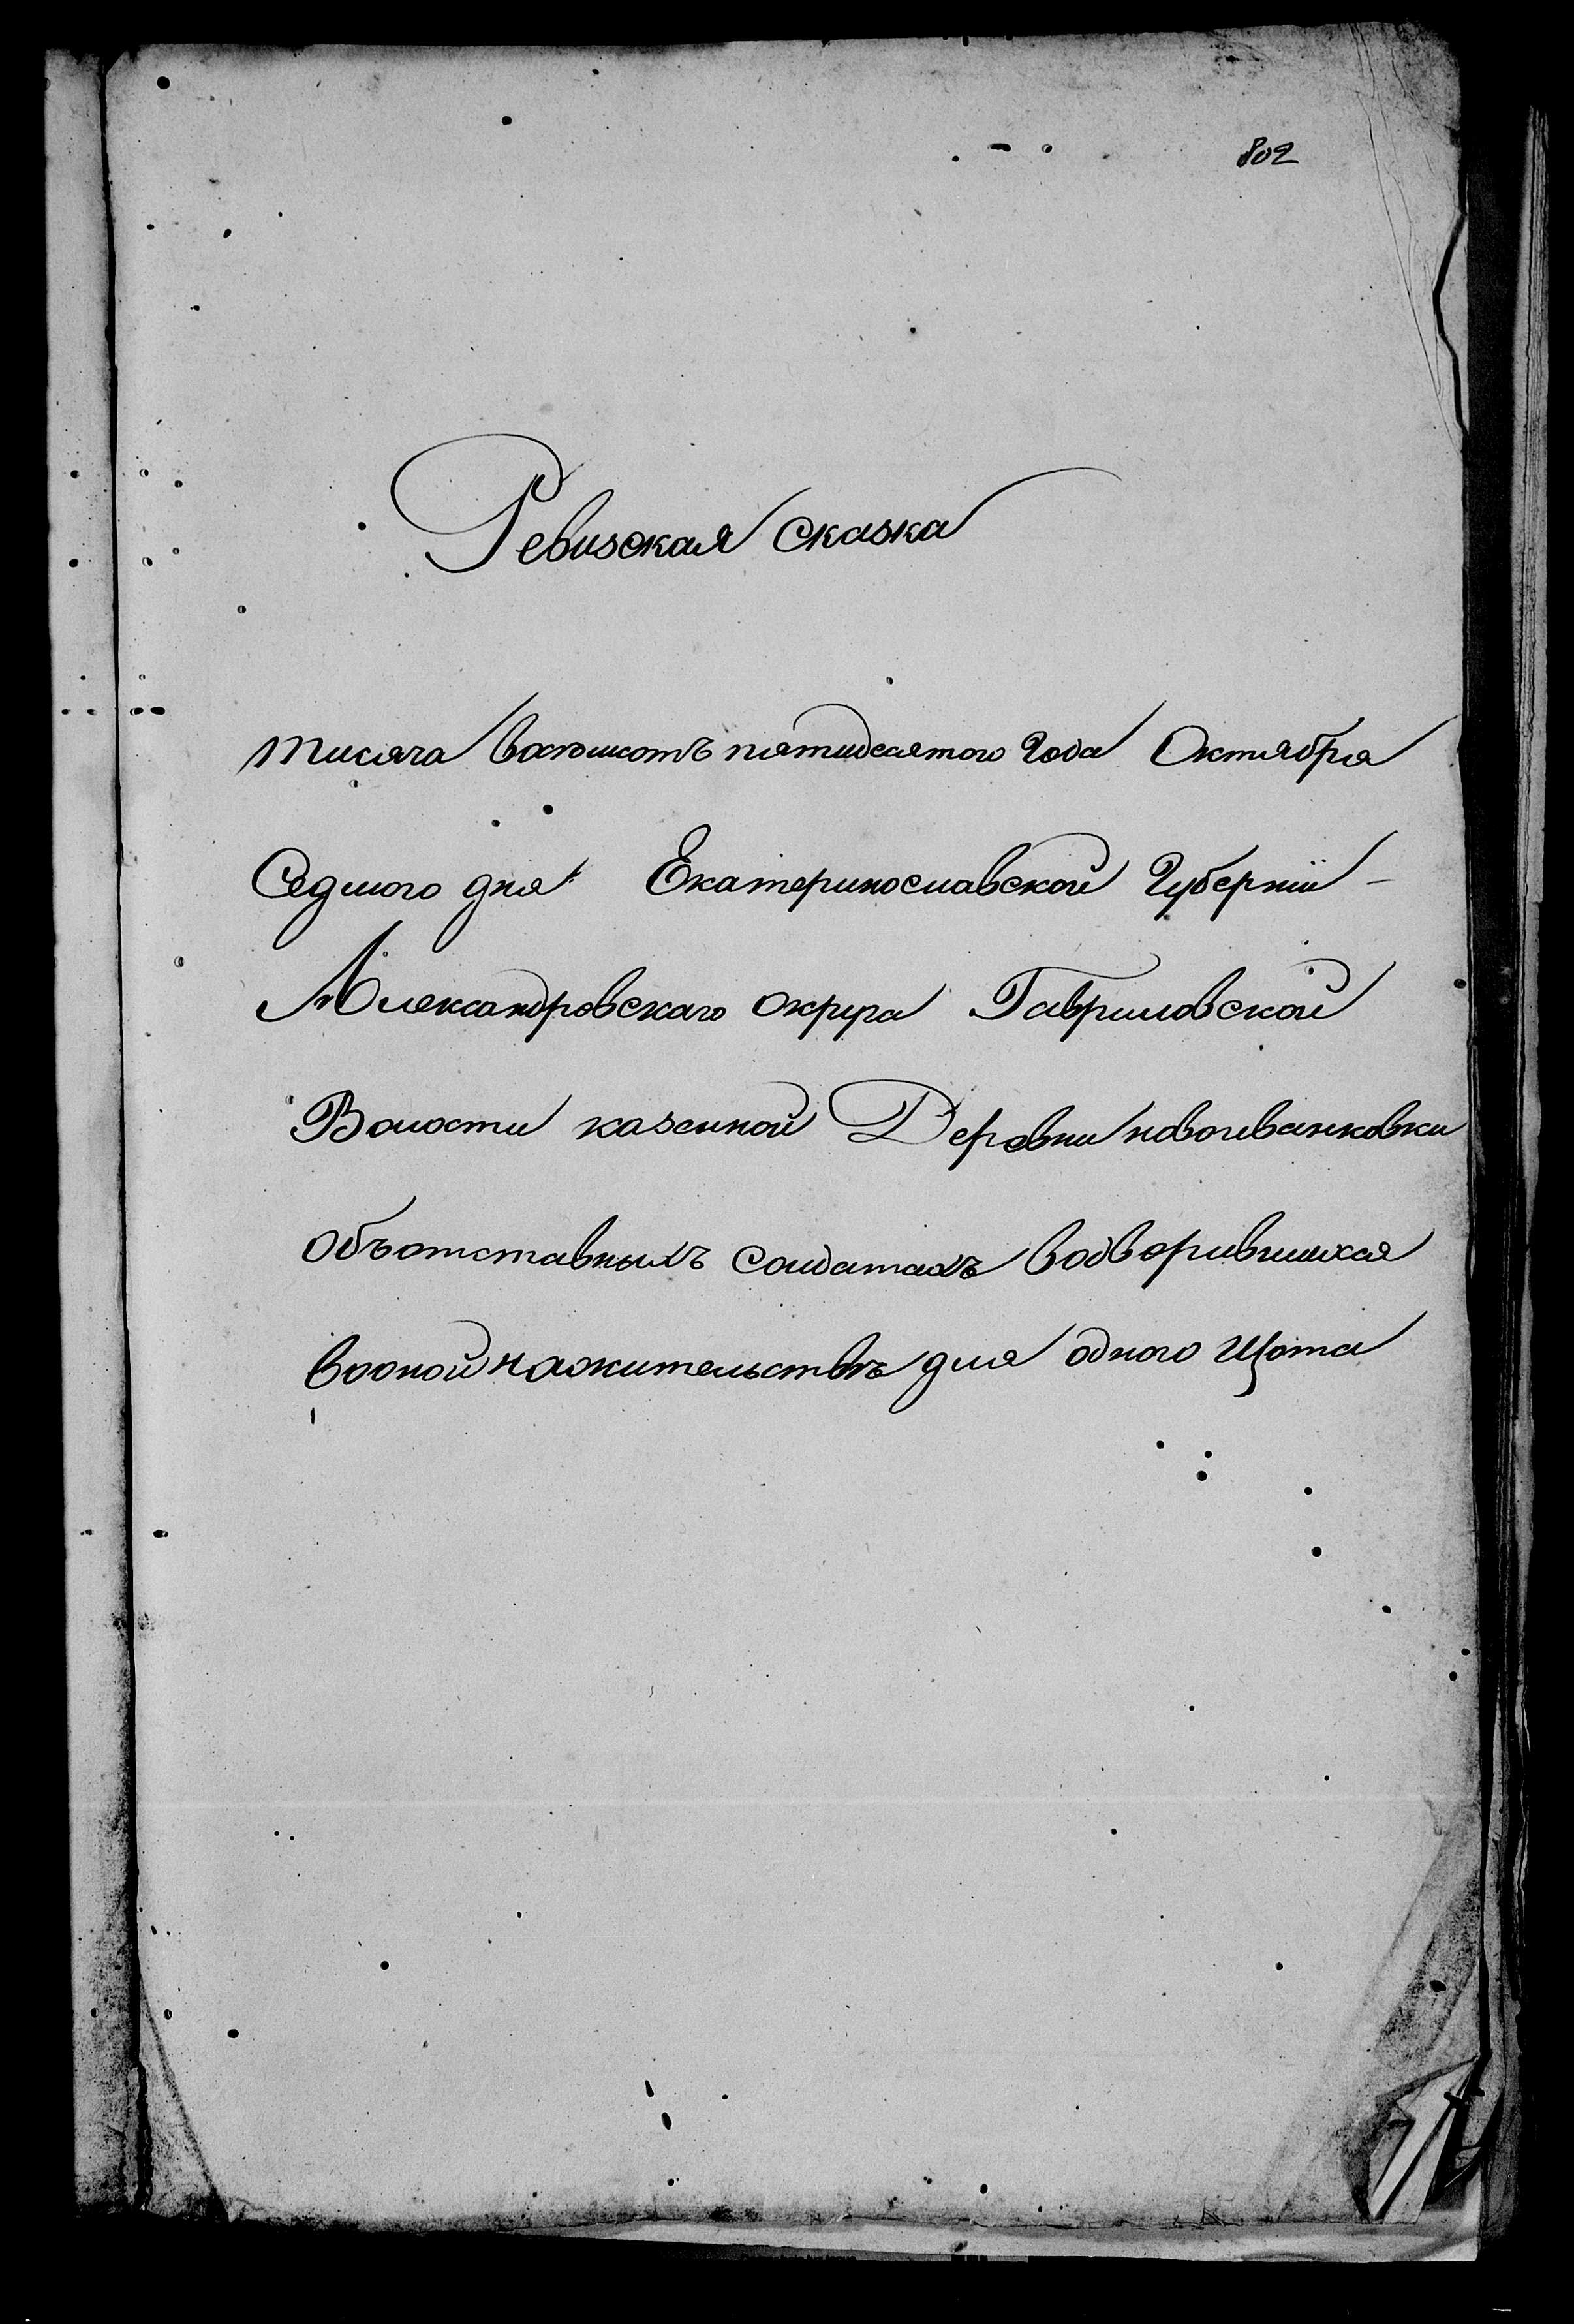 802
Ревизская сказка
тисяча восемсотъ пятидесятого Года Октября
Седмого дня Екатеринославской Губернїи -
Александровскаго округа Гавриловской
Волости казенной Деревни новоивановки
объотставныхъ солдатахъ водворившихся
вооной нажительствѣ для одного Щота